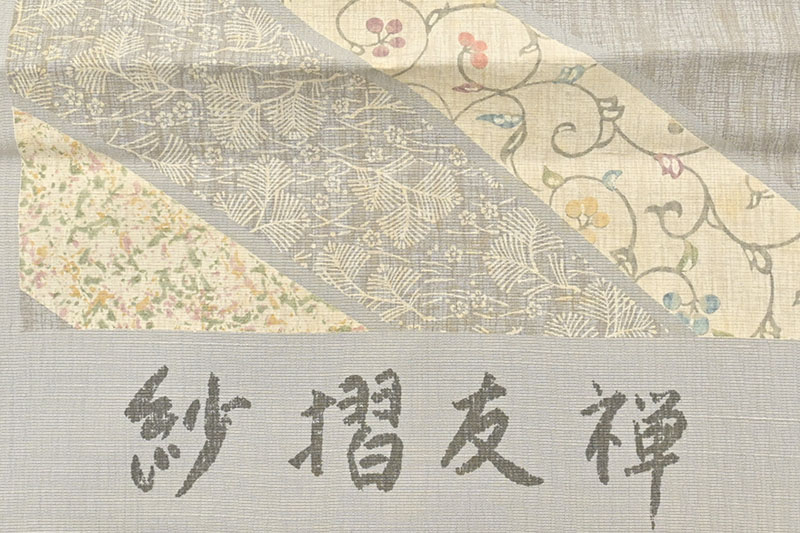 紗摺友禅